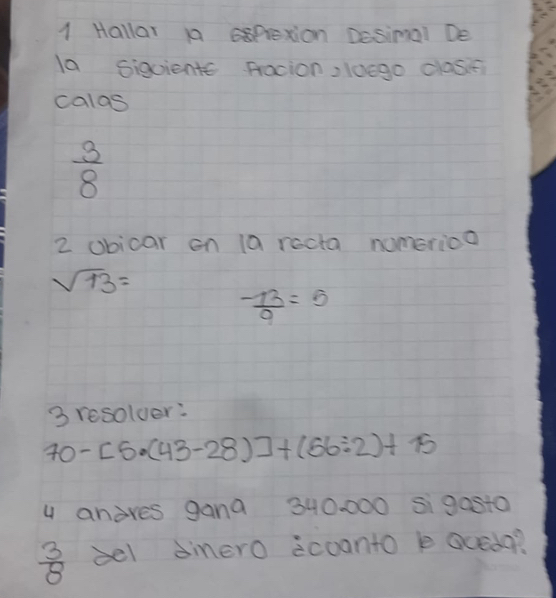 1 Hallar la esprexion Desimal De
la siguiente fracion, luego clasifi
calas
3
8
2 ubicar en la recta numerica
√13=
-13/9 = 5
3 resolver:
70-[5•(43-28)]+(56÷2)+15
4 andres gana 340.000 si gasto
3/8 del dinero ¿cuanto le queda?